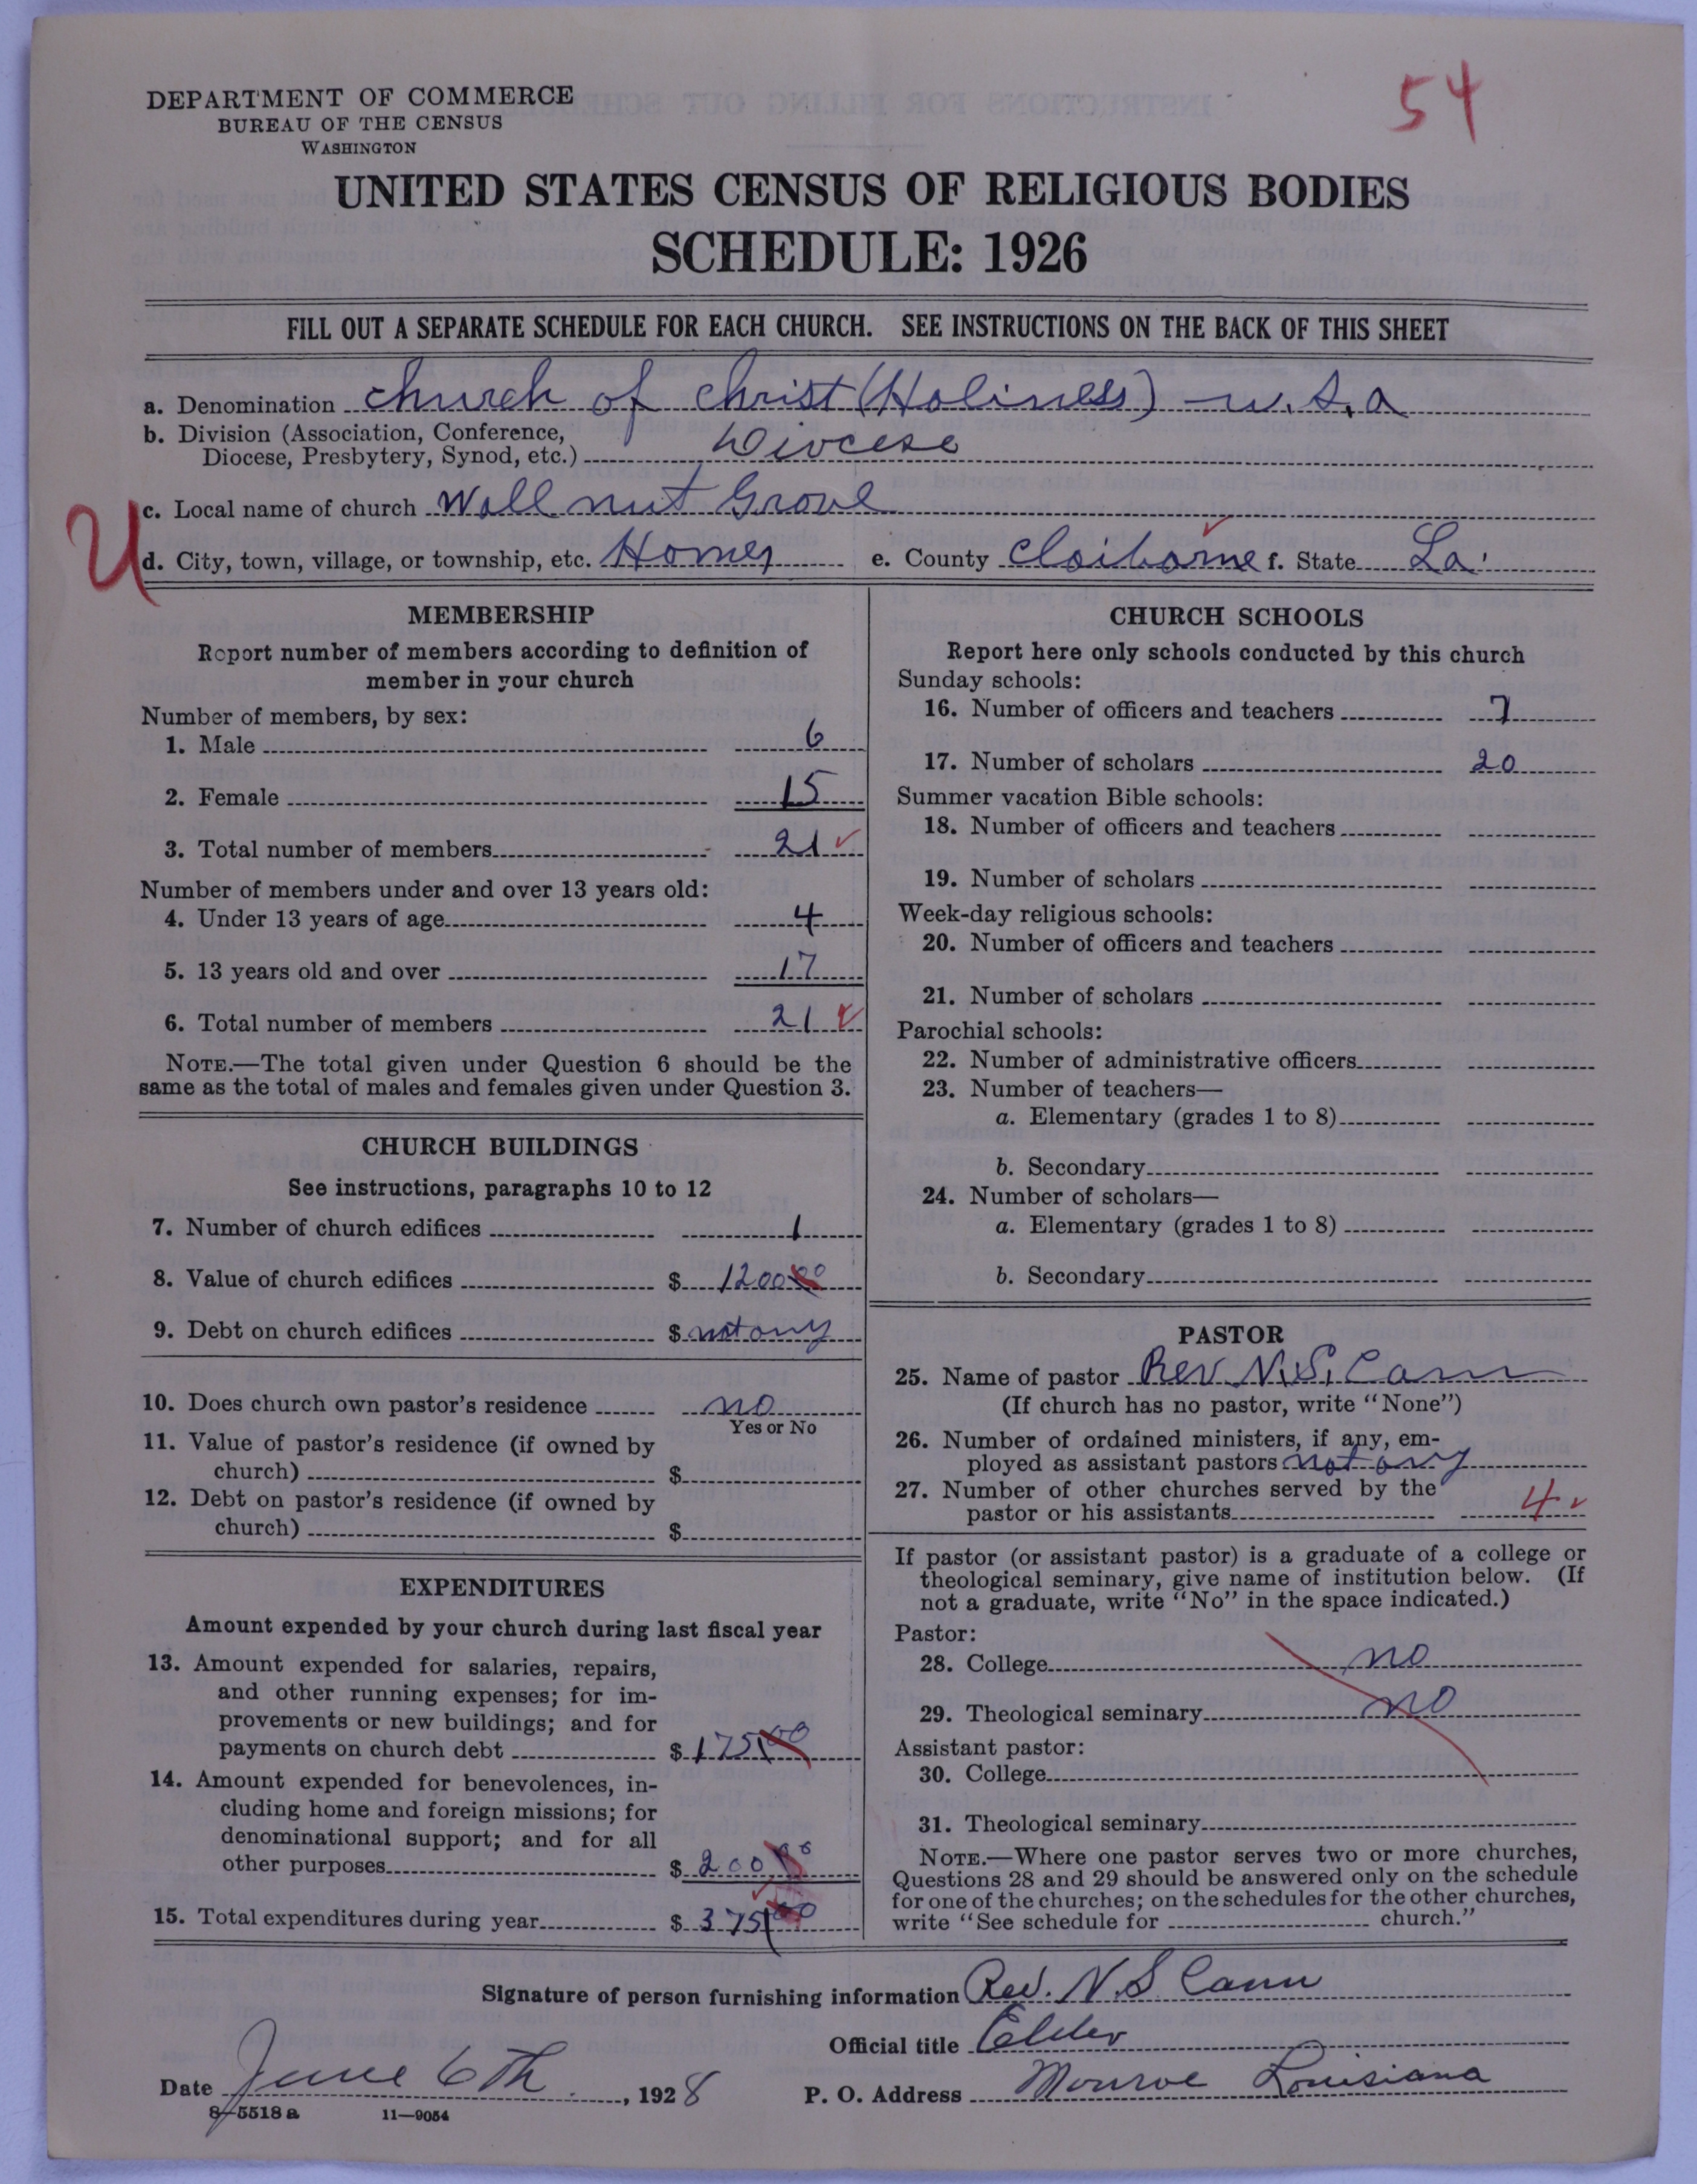 54
DEPARTMENT OF COMMERCE
BUREAU OF THE CENSUS
WASHINGTON
UNITED STATES CENSUS OF RELIGIOUS BODIES
SCHEDULE: 1926
FILL OUT A SEPARATE SCHEDULE FOR EACH CHURCH. SEE INSTRUCTIONS ON THE BACK OF THIS SHEET
a. Denomination church of christ (Holiness) - u.s.a
b. Division (Association, Conference,
Diocese, Presbytery, Synod, etc.) Diocese
U
c. Local name of church Wall nut Grove
d. City, town, village, or township, etc. Homer e. County Claiborne f. State La.
MEMBERSHIP
Report number of members according to definition of
member in your church
Number of members, by sex:
1. Male 6
2. Female 15
3. Total number of members 21 ✓
Number of members under and over 13 years old:
4. Under 13 years of age 4
5. 13 years old and over 17
6. Total number of members 21 ✓
NOTE.—The total given under Question 6 should be the
same as the total of males and females given under Question 3.
CHURCH BUILDINGS
See instructions, paragraphs 10 to 12
7. Number of church edifices 1
8. Value of church edifices $ 1200 00
9. Debt on church edifices $ not any
10. Does church own pastor's residence no
Yes or No
11. Value of pastor's residence (if owned by
church) $
12. Debt on pastor's residence (if owned by
church) $
EXPENDITURES
Amount expended by your church during last fiscal year
13. Amount expended for salaries, repairs,
and other running expenses; for im-
provements or new buildings; and for
payments on church debt $ 175 00
14. Amount expended for benevolences, in-
cluding home and foreign missions; for
denominational support; and for all
other purposes $ 200 00
15. Total expenditures during year $ 375 00
CHURCH SCHOOLS
Report here only schools conducted by this church
Sunday schools:
16. Number of officers and teachers 7
17. Number of scholars 20
Summer vacation Bible schools:
18. Number of officers and teachers
19. Number of scholars
Week-day religious schools:
20. Number of officers and teachers
21. Number of scholars
Parochial schools:
22. Number of administrative officers
23. Number of teachers—
a. Elementary (grades 1 to 8)
b. Secondary
24. Number of scholars—
a. Elementary (grades 1 to 8)
b. Secondary
PASTOR
25. Name of pastor Rev. N.S. Cann
(If church has no pastor, write "None")
26. Number of ordained ministers, if any, em-
ployed as assistant pastors not any
27. Number of other churches served by the
pastor or his assistants 4 ✓
If pastor (or assistant pastor) is a graduate of a college or
theological seminary, give name of institution below. (If
not a graduate, write "No" in the space indicated.)
Pastor:
28. College no
29. Theological seminary no
Assistant pastor:
30. College
31. Theological seminary
NOTE.—Where one pastor serves two or more churches,
Questions 28 and 29 should be answered only on the schedule
for one of the churches; on the schedules for the other churches,
write "See schedule for church."
Signature of person furnishing information Rev. N.S Cann
Official title Elder
Date June 6th, 1928 P. O. Address Monroe Louisiana
8—5518 a 11—9054